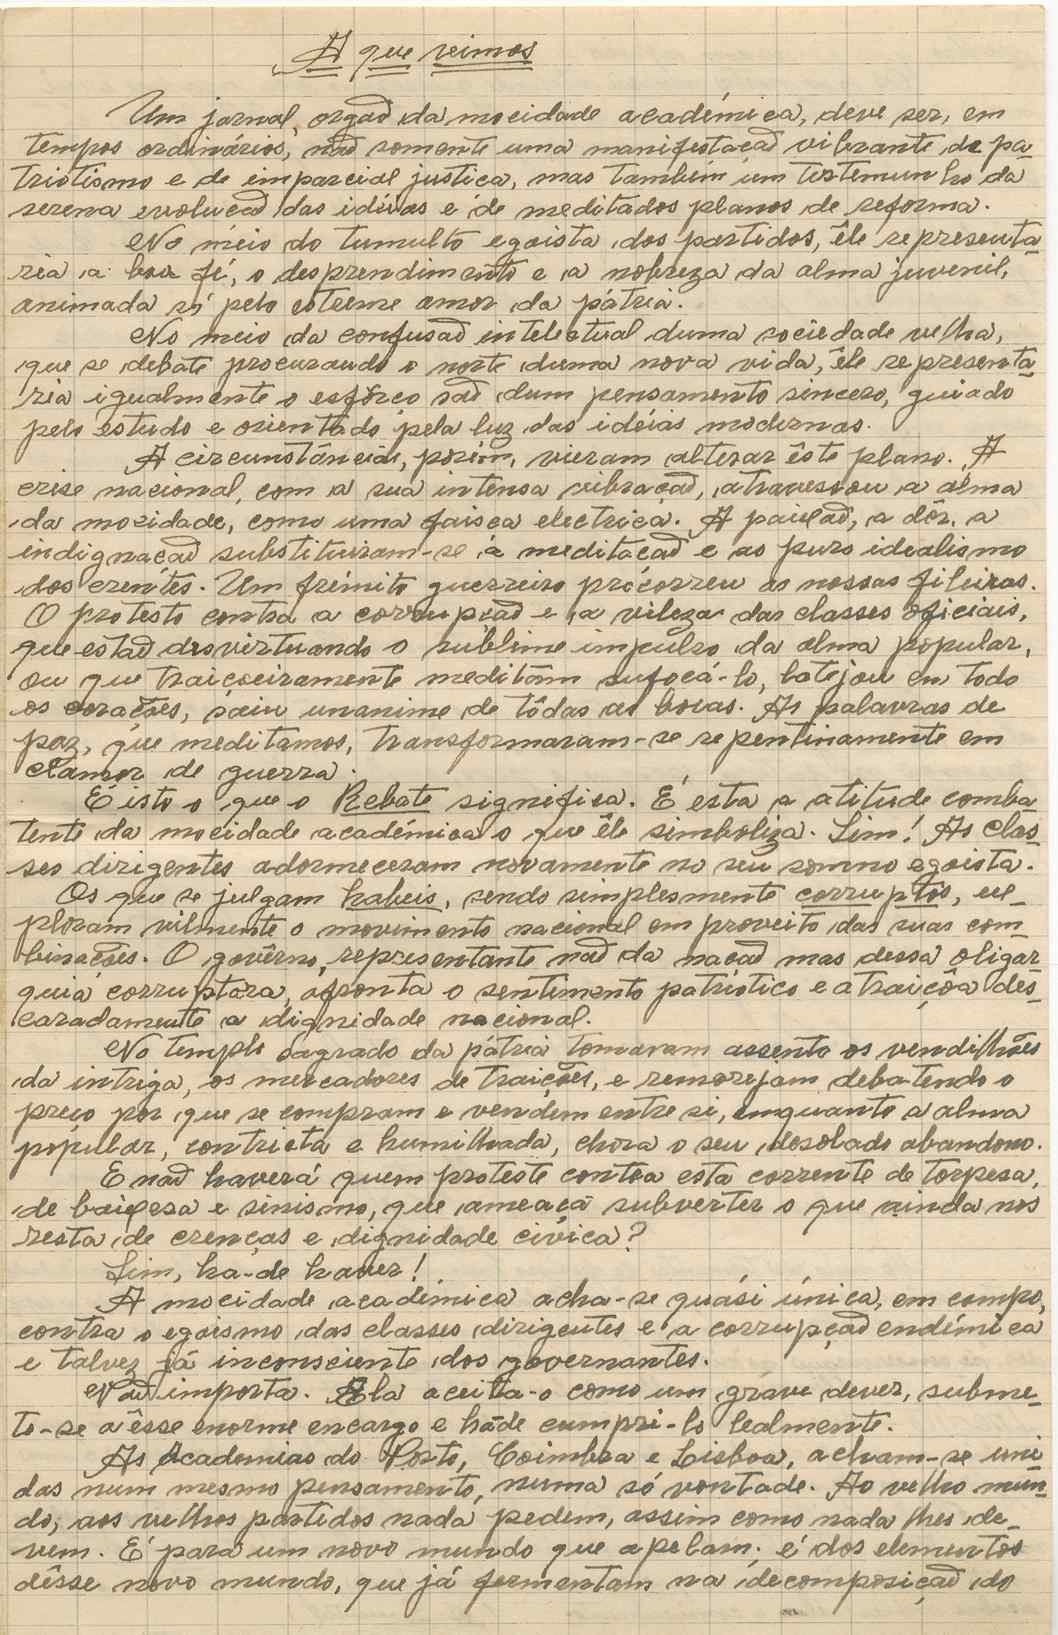 A que veimos
Um jornal, orgaõ da mocidade académica, deve ser, em
tempos ordinários, naõ somente uma manifestaçaõ vibrante de pa-
triotismo e de imparcial justiça, mas também um testemunho da
serena evoluçaõ das ideias e de meditados planos de reforma.
No meio do tumulto egoista dos partidos, êle representa-
ria a boa fé, o desprendimento e a nobreza da alma juvenil,
animada só pelo estreme amor da pátria.
No meio da confusaõ intelectual duma sociedade velha,
que se debate procurando o norte duma nova vida, êle representa-
ria igualmente o esfôrço saõ dum pensamento sincero, guiado
pelo estudo e orientado pela luz das idéias modernas.
A circunstâncias, porém, vieram alterar êste plano. A
crise nacional, com a sua intensa vibraçaõ, atravessou a alma
da mocidade, como uma faisca electrica. A paixaõ, a dôr, a
indignaçaõ substituiram-se á meditaçaõ e ao puro idealismo
dos crentes. Um frémito guerreiro precorreu as nossas fileiras.
O protesto contra a corrupçaõ e a vileza das classes oficiais,
que estaõ desvirtuando o sublime impulso da alma popular,
ou que traiçoeiramente meditam sufocá-lo, latejou em todo
os corações, saiu unanime de tôdas as bocas. As palavras de
paz, que meditamos, transformaram-se repentinamente em
clamor de guerra.
É isto o que o Rebate significa. É esta a atitude comba-
tente da mocidade académica o que êle simboliza. Sim! As clas-
ses dirigentes adormeceram novamente no seu somno egoista.
Os que se julgam habeis, sendo simplesmente corruptos, ex-
ploram vilmente o movimento nacional em proveito das suas com-
binações. O govêrno, representante naõ da naçaõ mas dessa oligar-
quia corruptora, afronta o sentimento patriótico e atraiçôa des-
caradamente a dignidade nacional.
No templo sagrado da pátria tomaram assento os vendilhões
da intriga, os mercadores de traições, e remorejam debatendo o
preço por que se compram e vendem entre si, emquanto a alma
popular, contricta e humilhada, chora o seu desolado abandono.
E naõ haverá quem proteste contra esta corrente de torpesa,
de baixesa e sinismo, que ameaça subverter o que ainda nos
resta de crenças e dignidade cívica?
Sim, ha-de haver!
A mocidade académica acha-se quási única, em campo,
contra o egoismo das classes dirigentes e a corrupçaõ endémica
e talvez já inconsciente dos governantes.
Naõ importa. Ela aceita-o como um grave dever, subme-
to-se a êsse enorme encargo e háde cumpri-lo lealmente.
As Academias do Porto, Coimbra e Lisboa, acham-se uni-
das num mesmo pensamento, numa só vontade. Ao velho mun-
do, aos velhos partidos nada pedem, assim como nada lhes de-
vem. É para um novo mundo que apelam; é dos elementos
dêsse novo mundo, que já fermentam na decomposiçaõ do